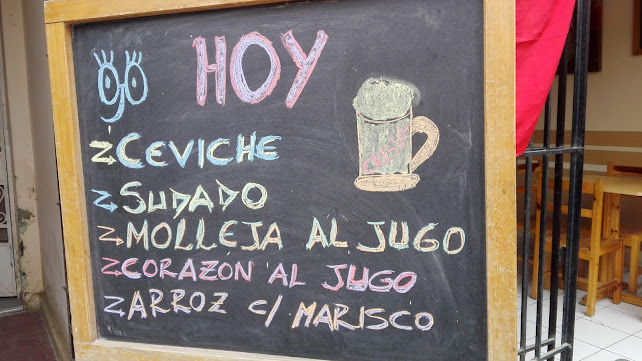 HOY
CEVICHE
SUDADO
MOLLEJA AL JUGO
CORAZON AL JUGO
ARROZ C/ MARISCO